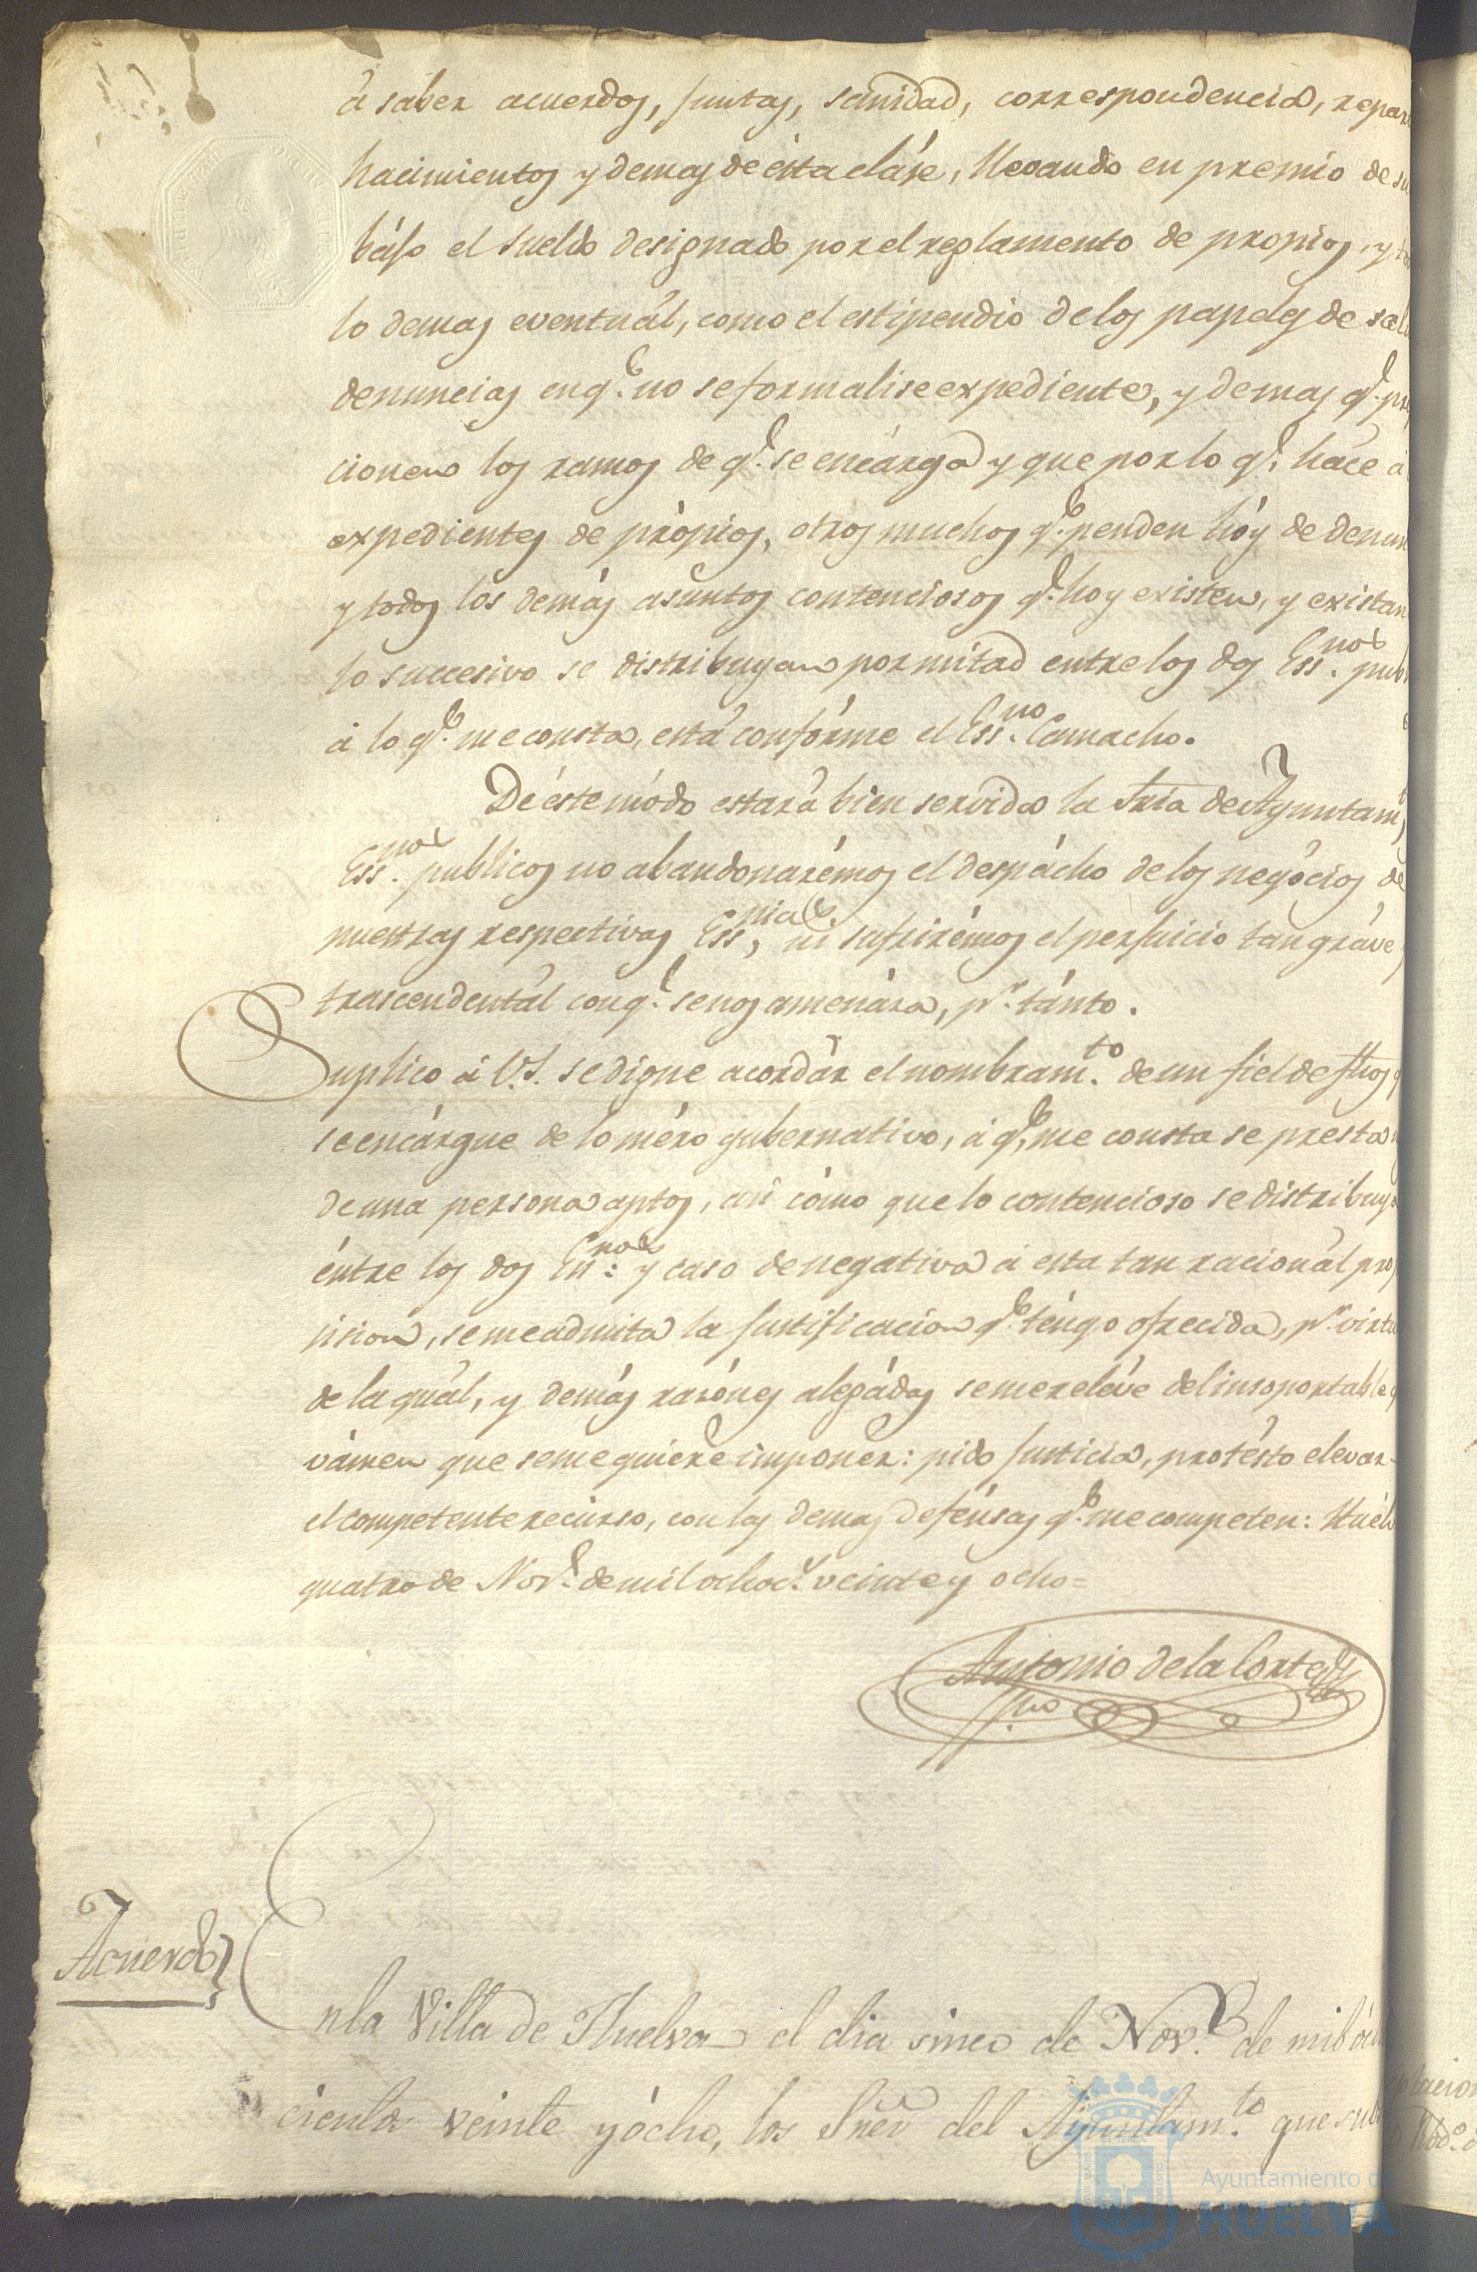 á saber acuerdos, juntas, sanidad, correspondencia, repar
hacimientos y demas de ésta cláse, llevando en premio de su
bájo el sueldo designado por el reglamento de propios, y to
lo demas eventuál, como el estipendio de los papeles de sal
denuncias en q.e no se formalise expediente, y demas q.e pro
cionen los ramos de q.e se encárga y que por lo q.e háce á
expedientes de própios, otros muchos q.e penden hóy de denun
y todos los demás asuntos contenciosos q.e hoy existen, y existan
lo succesivo se distribuyan por mitad entre los dos Ess.nos pub
á lo q.e me consta, está confórme el Ess.no Camacho.
De éste módo estará bien servida la Sria de Ayuntam.t
Ess.nos publicos no abandonarémos el despácho de los negócios de
nuestras respectivas Ess.nias, ni sufrirémos el perjuicio tan gráve y
trascendentál con q.e se nos amenáza, p.r tánto.
Suplico á V.S. se digne acordár el nombram.to de un fiel de fhos q
se encárgue de lo méro gubernativo, á q.e me consta se presta
de una persona aptos, asi cómo que lo contencioso se distribuya
éntre los dos Ess.nos y caso de negativa á esta tan racionál pro
sision, se me admita la justificacion q.e téngo ofrecida, p.r virtu
de la quál, y demás razónes alegádas se me reléve del insoportable g
vámen que se me quiére imponer: pido justicia, protésto elevar
el competente recúrso, con las demas defénsas q.e me competen: Huélv
quatro de Nov.e de mil ochoc.s veinte y ocho=
Antonio de la Corte
Acuerdo}
En la Villa de Huelva el dia sinco de Nov.e de mil óch
cientos veinte y ócho, los Sres del Ayuntam.to que sub
Ayuntamiento de
HUELVA